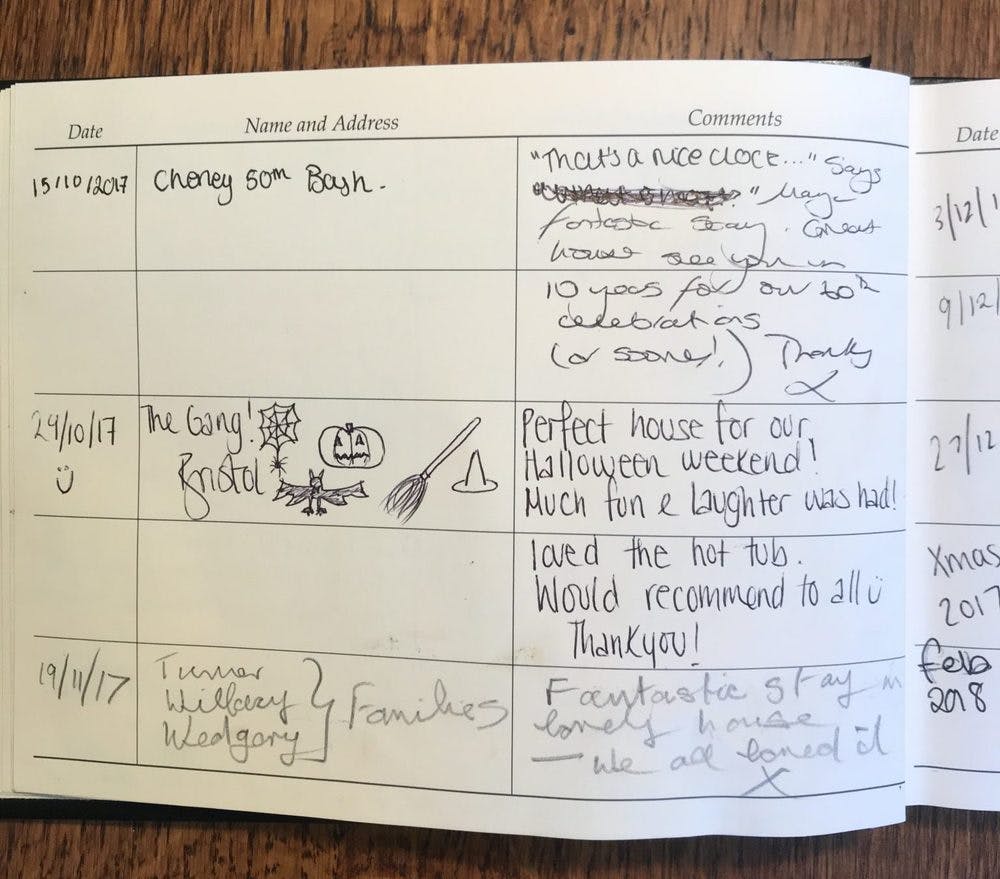 Date Name and Address Comments
15/10/2017 Cheney 50th Bash. "That's a nice clock..." Says
" Maya
fantastic stay. Great
house see you in
10 years for our 60th
celebrations
(or sooner!) Thanks
x
29/10/17 The Gang!
Bristol
Perfect house for our
Halloween weekend!
Much fun & laughter was had!
loved the hot tub.
Would recommend to all
Thankyou!
19/11/17 Turner
Willary
Wedgery
Families
Fantastic stay in
lovely house
— we all loved it
X
Date
3/12/1
9/12/
27/12
Xmas
2017
Feb
2018